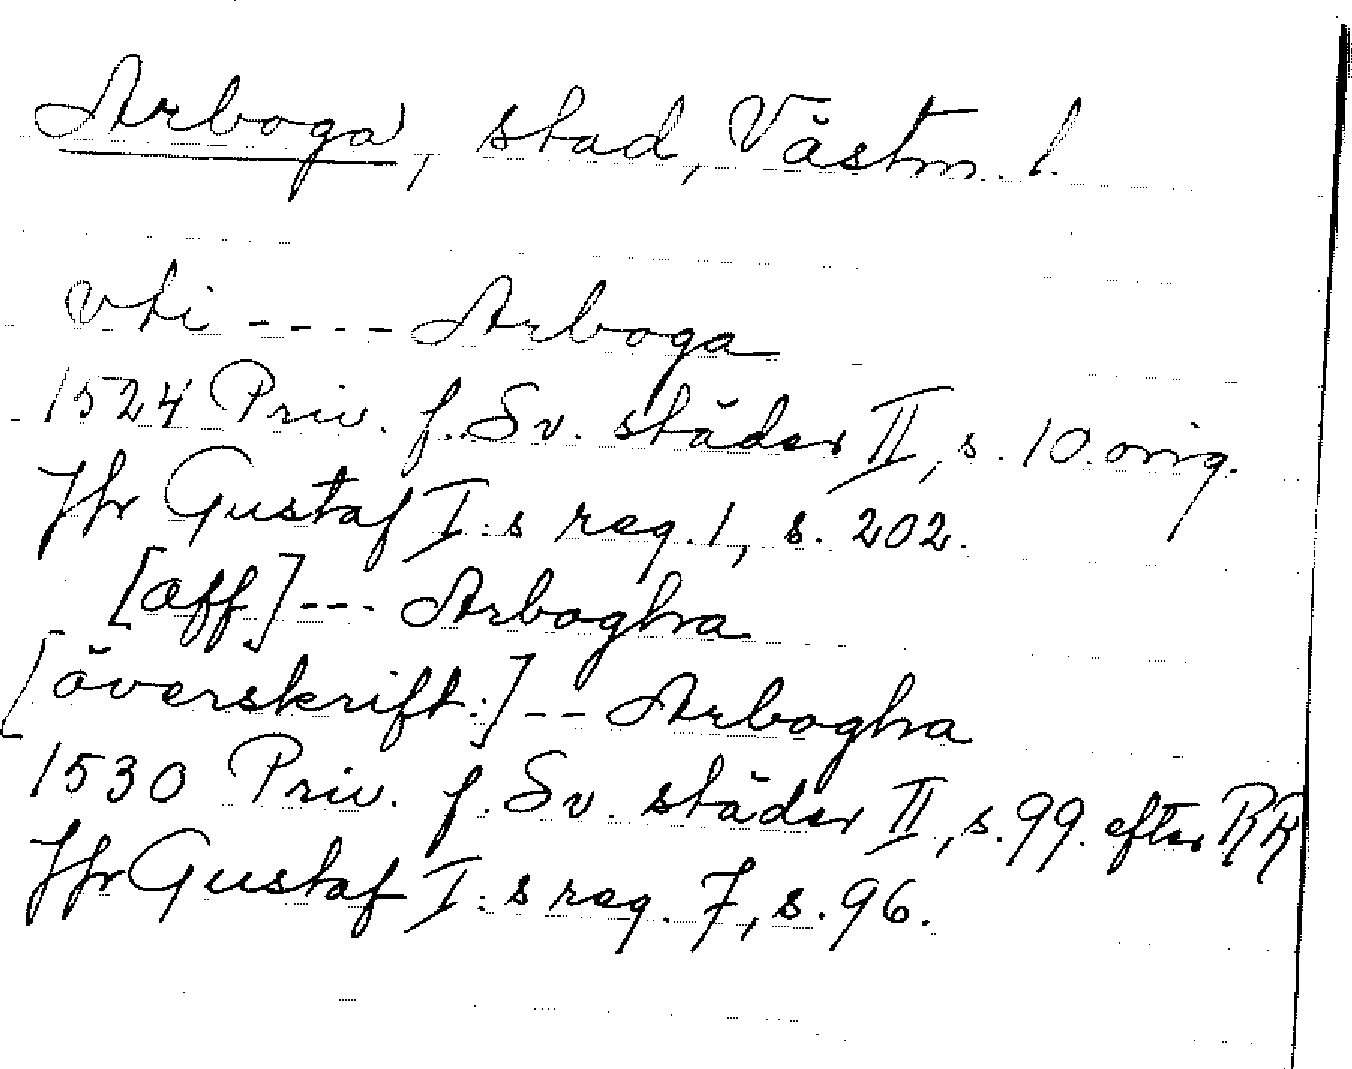 Arboga, stad, Västm. l.
vti ---- Arboga
1524 Priv. f. Sv. städer II, s. 10. orig.
Jfr Gustaf I:s reg. 1, s. 202.
[aff] --- Arbogha
[överskrift:] -- Arbogha
1530 Priv. f. Sv. städer II, s. 99. efter RR
Jfr Gustaf I:s reg. 7, s. 96.